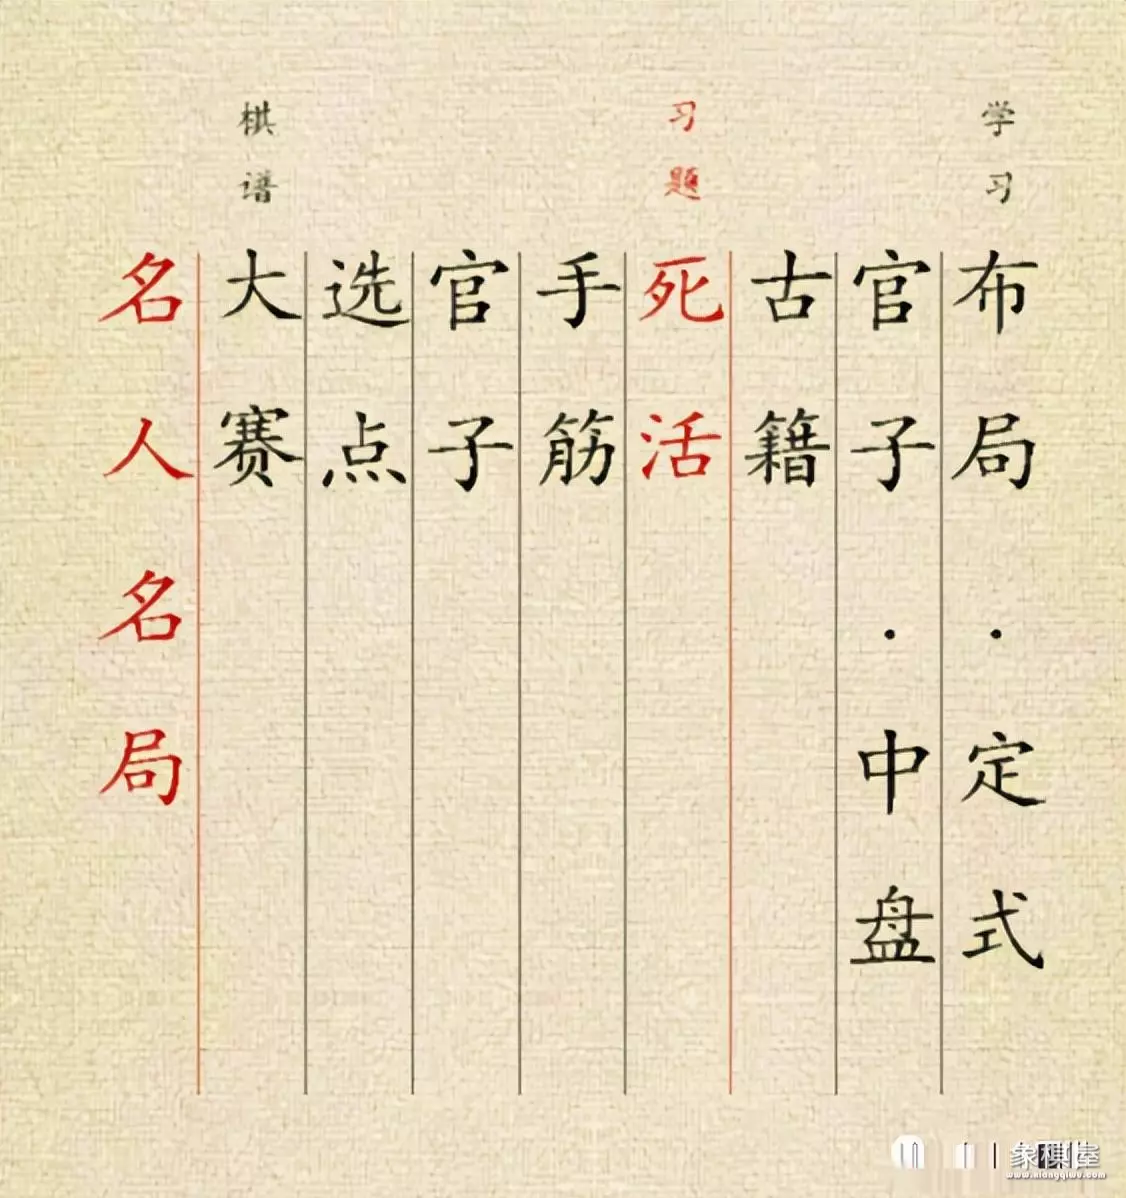 学习
习题
棋谱
布局·定式
官子·中盘
古籍
死活
手筋
官子
选点
大赛
名人名局
象棋屋
www.xiangqiwu.com